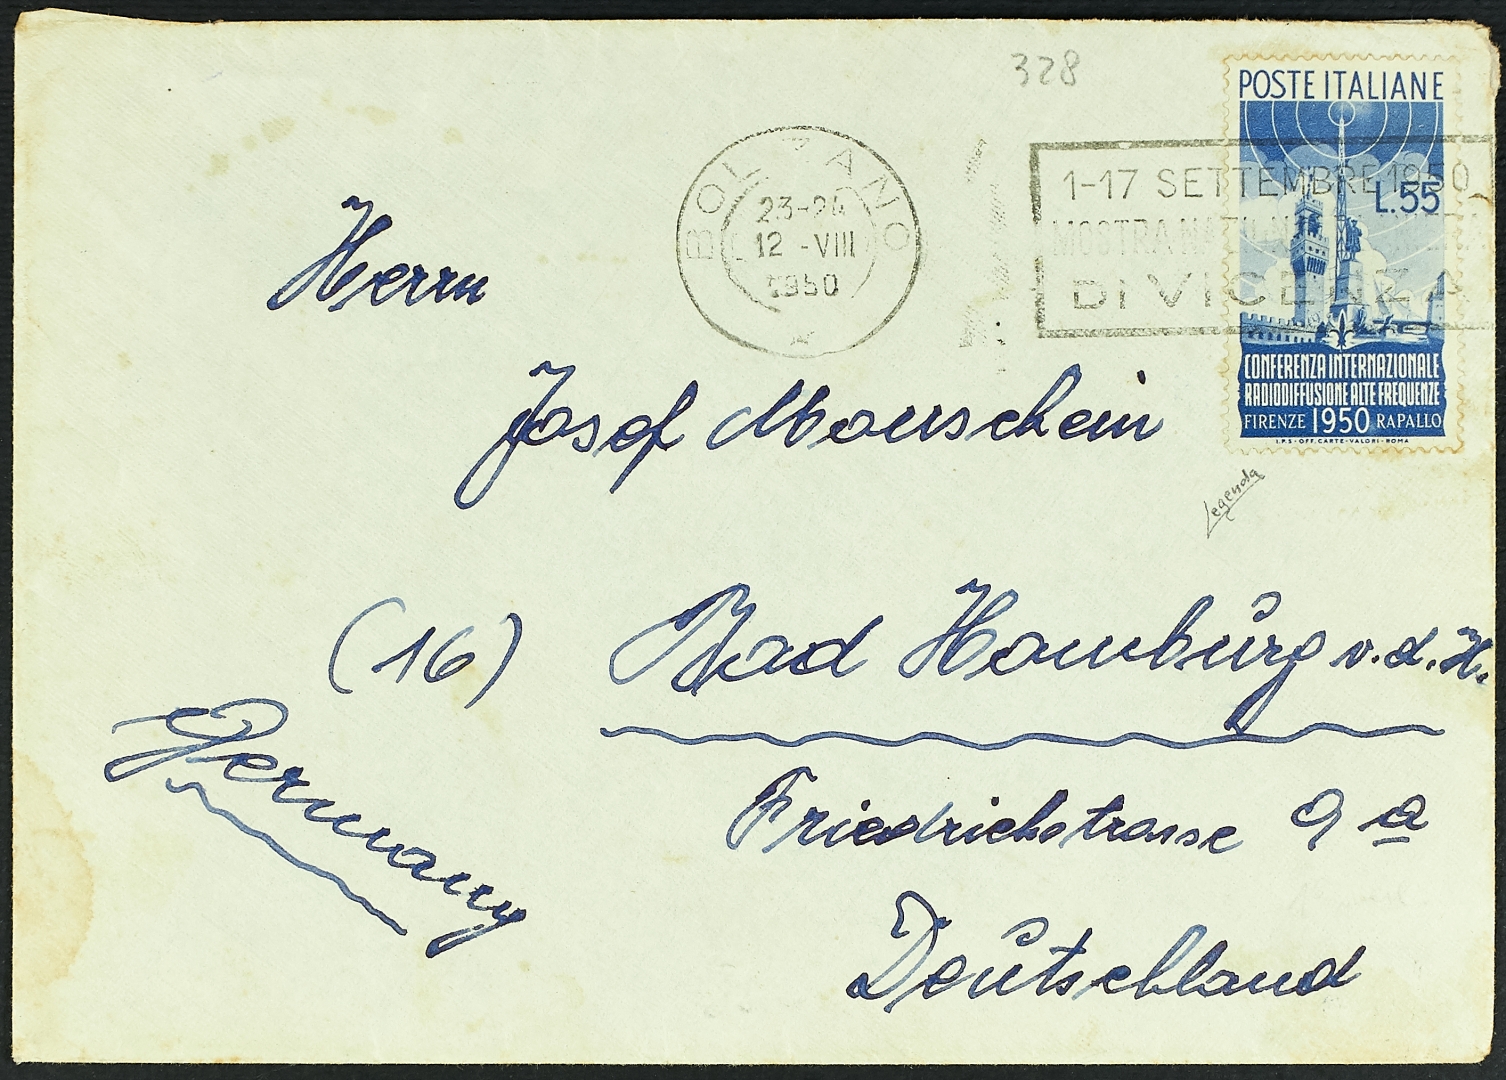 328
POSTE ITALIANE
L.55
CONFERENZA INTERNAZIONALE
RADIODIFFUSIONE ALTE FREQUENZE
FIRENZE 1950 RAPALLO
I.P.S - OFF. CARTE-VALORI - ROMA
BOLZANO
23-24
12 -VIII
1950
1-17 SETTEMBRE 1950
MOSTRA NAZION
DI VICENZA
Legenda
Herrn
Josef Mouschein
(16) Bad Homburg v.d.H.
Germany
Friedrichstrasse 9 a
Deutschland